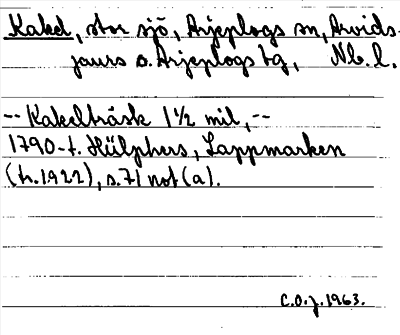 Kakel, stor sjö, Arjeplogs sn, Arvids-
jaurs o. Arjeplogs tg, Nb. l.
-- Kakelträsk 1 1/2 mil, --
1790-t. Hülphers, Lappmarken
(tr. 1922), s. 71 not (a).
C.O.J. 1963.